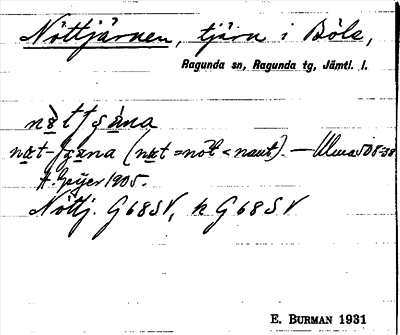 Nöttjärnen, tjärn i Böle,
Ragunda sn, Ragunda tg, Jämtl. l.
nöttjäna
nœt-jäna (nœt = nöt < naut). —
A. Geijer 1905.
Nöttj. G 68 SV, k G 68 SV
E. BURMAN 1931